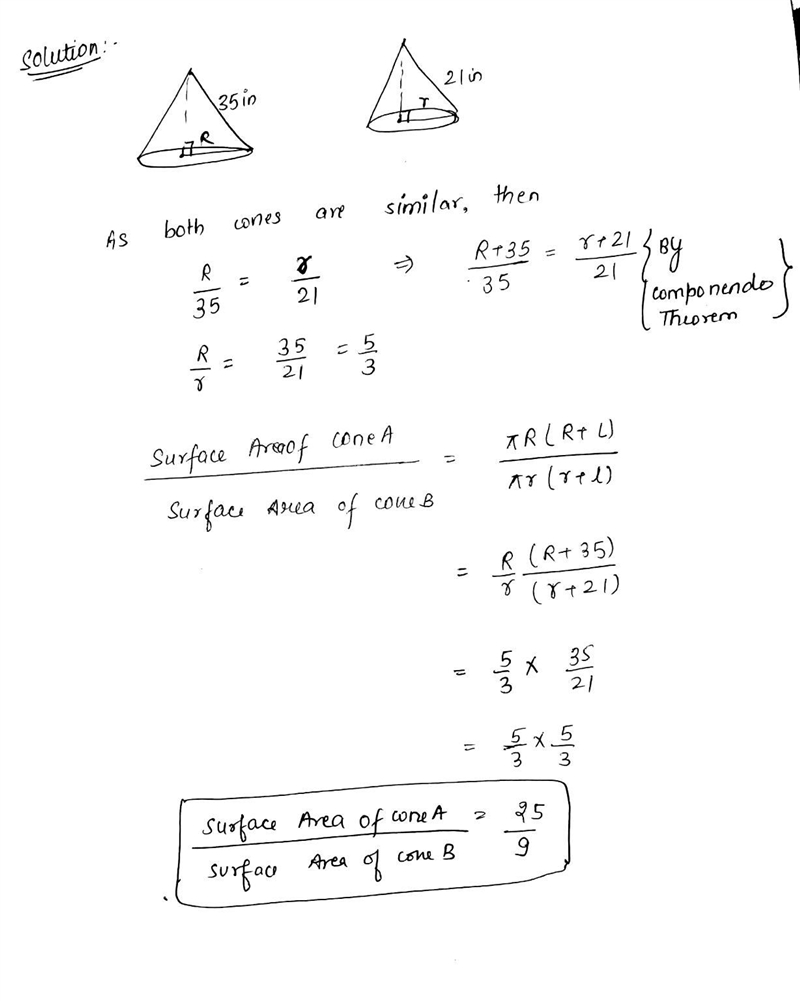 Solution:-
35in
R
21in
r
As both cones are similar, then
R/35 = r/21 ⇒ R+35/35 = r+21/21 { By componendo Theorem }
R/r = 35/21 = 5/3
Surface Area of cone A / Surface Area of cone B = πR(R+L) / πr(r+l)
= R/r (R+35)/(r+21)
= 5/3 × 35/21
= 5/3 × 5/3
Surface Area of cone A / Surface Area of cone B = 25/9